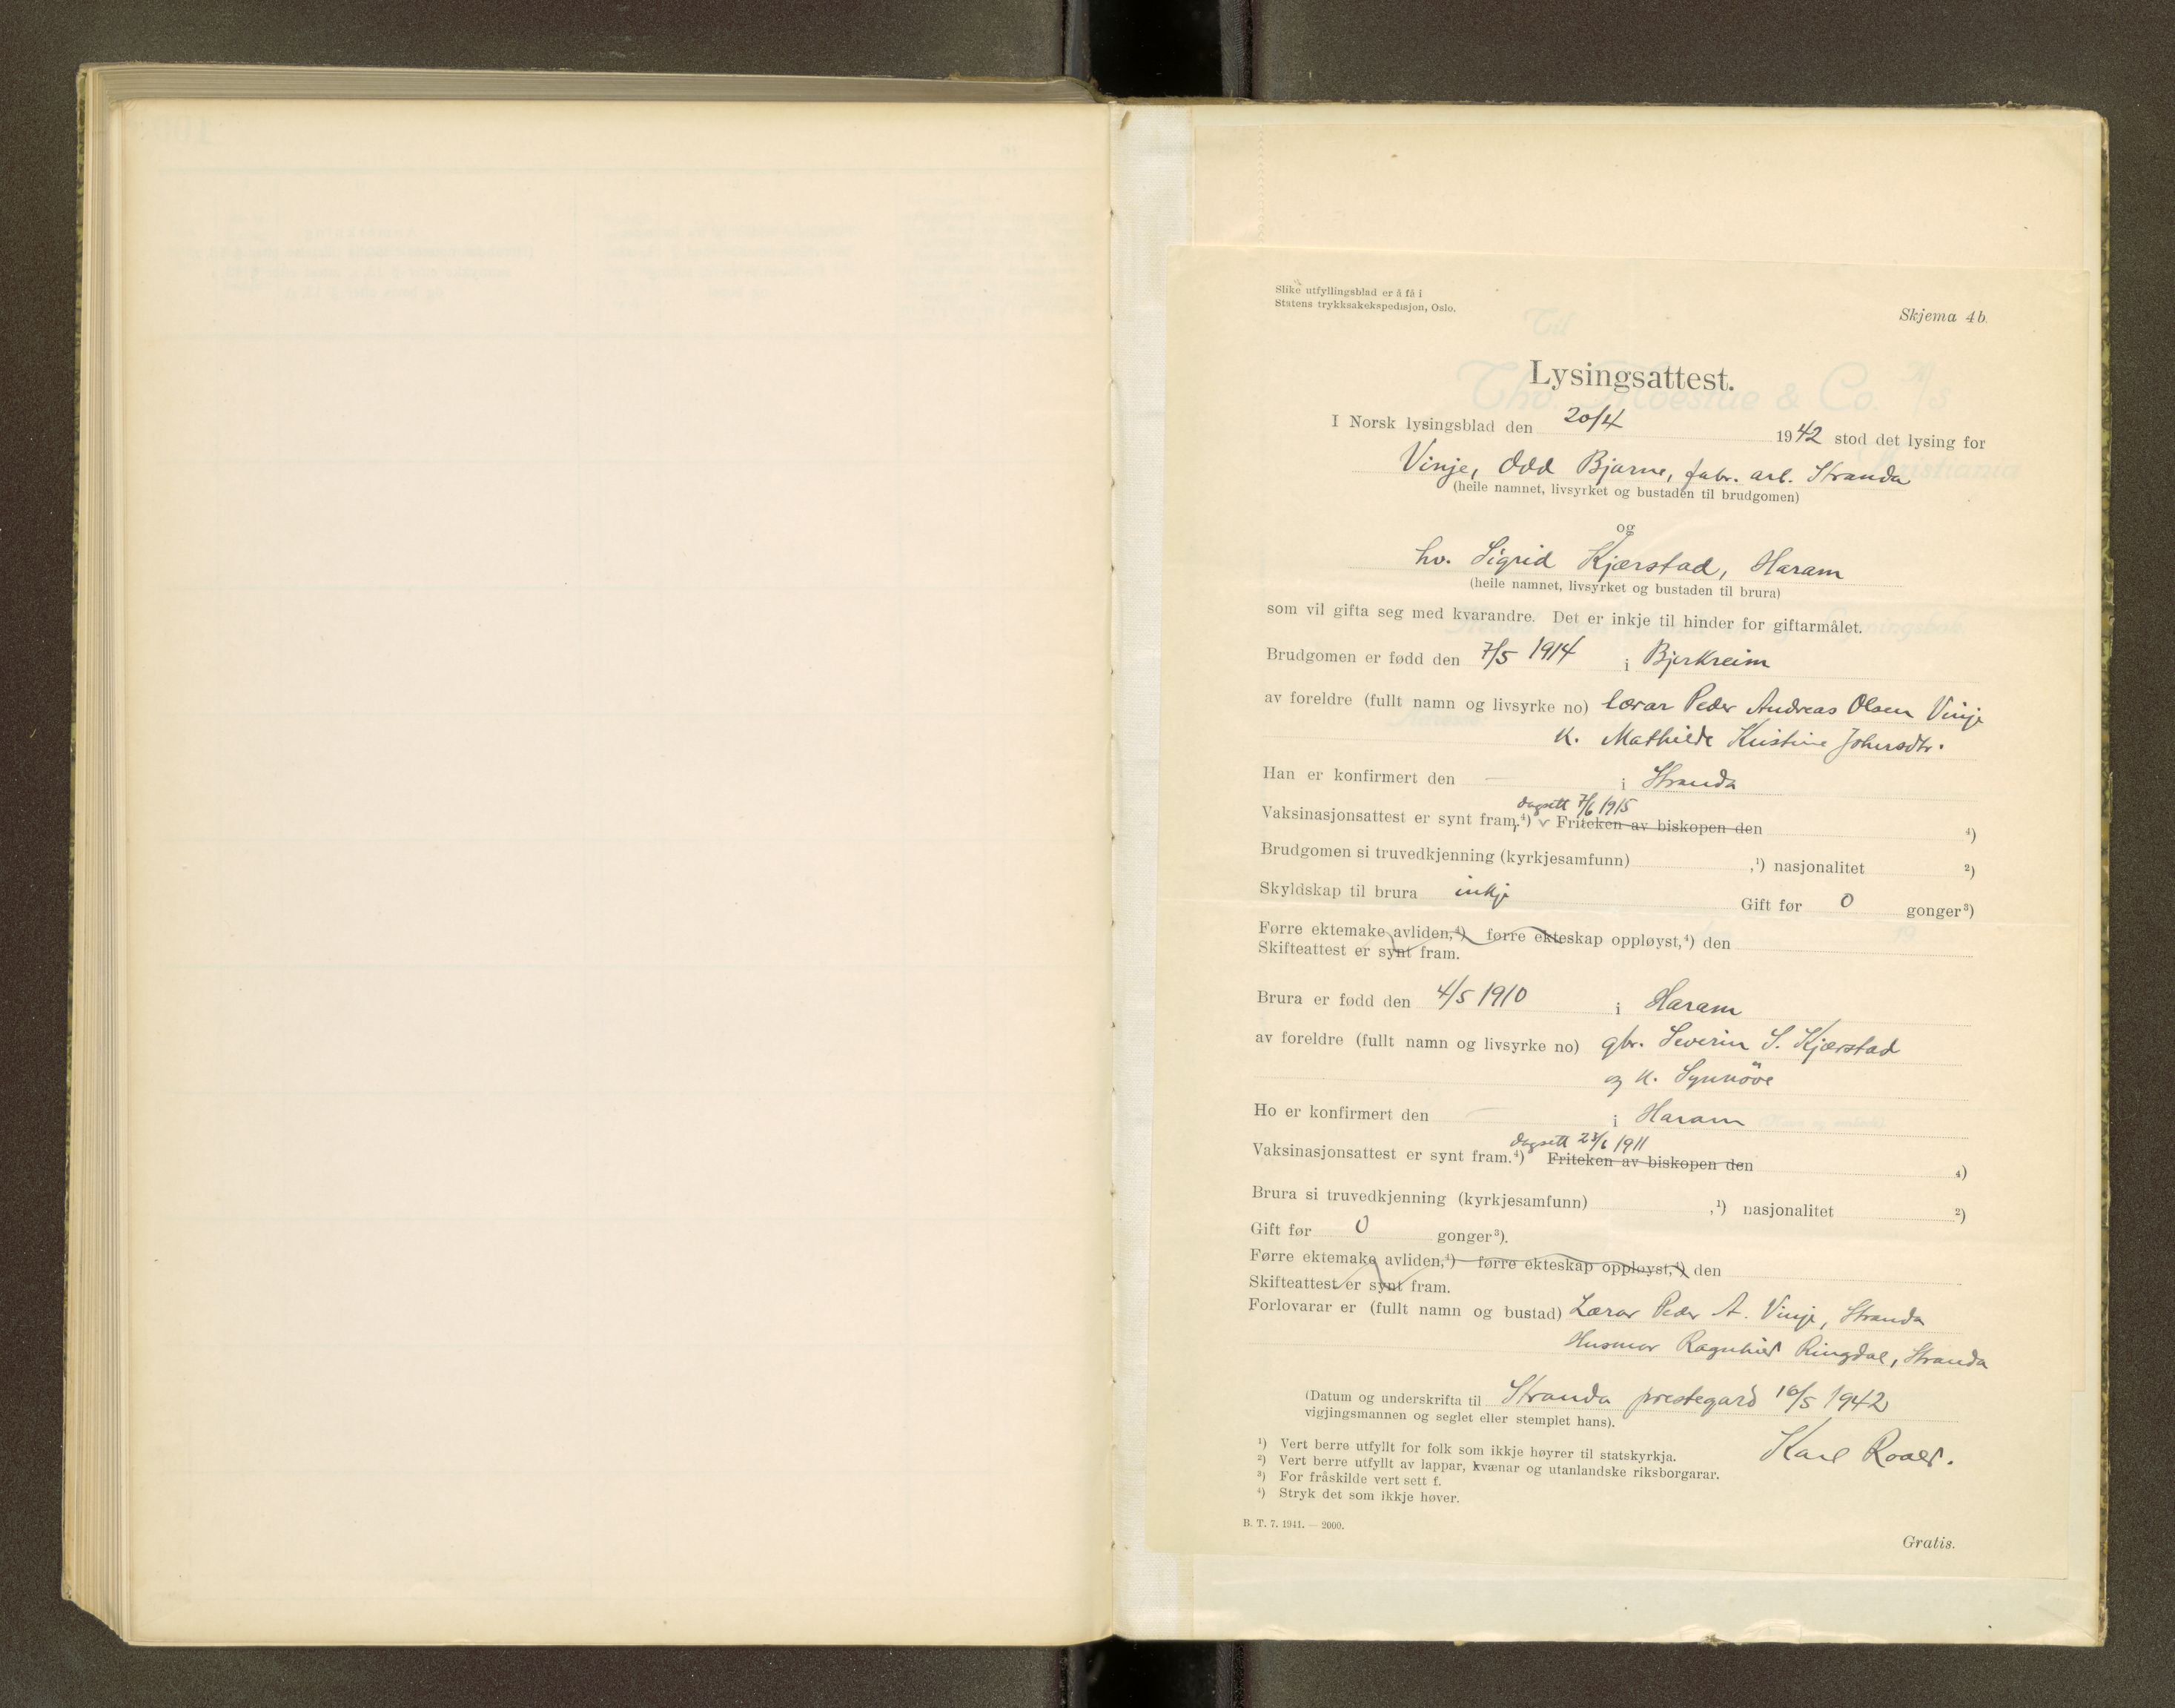 Slike utfyllingsblad er å få i
Statens trykksakekspedisjon, Oslo.
Skjema 4b.
Lysingsattest.
I Norsk lysingsblad den 20/4 1942 stod det lysing for
Vinje, Odd Bjarne, fabr. arb. Stranda
(heile namnet, livsyrket og bustaden til brudgomen)
og
hv. Sigrid Kjærstad, Haram
(heile namnet, livsyrket og bustaden til brura)
som vil gifta seg med kvarandre. Det er inkje til hinder for giftarmålet.
Brudgomen er fødd den 7/5 1914 i Bjerkreim
av foreldre (fullt namn og livsyrke no) lærar Peder Andreas Olsen Vinje
k. Mathilde Kristine Johnsdtr.
Han er konfirmert den — i Stranda
dagsett 7/6 1915
Vaksinasjonsattest er synt fram.⁴) Friteken av biskopen den ⁴)
Brudgomen si truvedkjenning (kyrkjesamfunn) ,¹) nasjonalitet ²)
Skyldskap til brura inkje Gift før 0 gonger³)
Førre ektemake avliden,⁴) førre ekteskap oppløyst,⁴) den
Skifteattest er synt fram.
Brura er fødd den 4/5 1910 i Haram
av foreldre (fullt namn og livsyrke no) gbr. Severin S. Kjærstad
og k. Synnöve
Ho er konfirmert den — i Haram
dagsett 23/6 1911
Vaksinasjonsattest er synt fram.⁴) Friteken av biskopen den ⁴)
Brura si truvedkjenning (kyrkjesamfunn) ,¹) nasjonalitet ²)
Gift før 0 gonger³).
Førre ektemake avliden,⁴) førre ekteskap oppløyst,⁴) den
Skifteattest er synt fram.
Forlovarar er (fullt namn og bustad) Lærar Peder A. Vinje, Stranda
Husmor Ragnhild Ringdal, Stranda
(Datum og underskrifta til Stranda prestegard 16/5 1942
vigjingsmannen og seglet eller stemplet hans).
Karl Roald.
¹) Vert berre utfyllt for folk som ikkje høyrer til statskyrkja.
²) Vert berre utfyllt av lappar, kvænar og utanlandske riksborgarar.
³) For fråskilde vert sett f.
⁴) Stryk det som ikkje høver.
B. T. 7. 1941. — 2000.
Gratis.